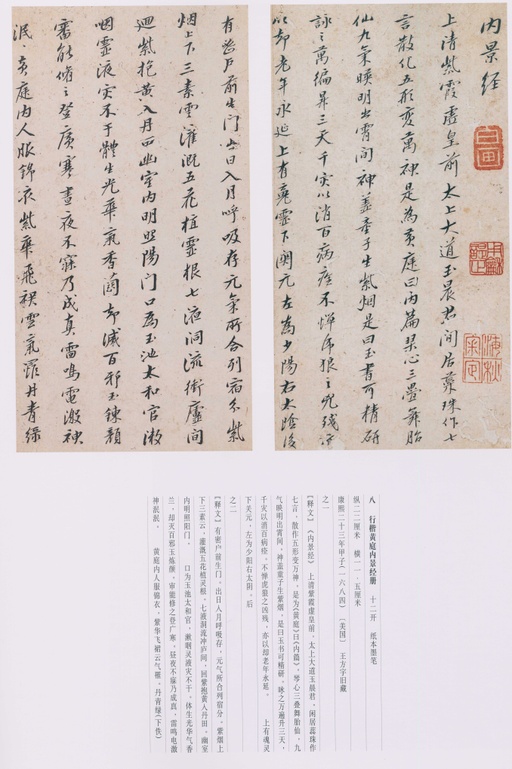 内景經
上清紫霞虛皇前 太上大道玉晨君 閒居蕊珠作七
言散化五形變萬神是為黃庭曰內篇琴心三疊舞胎
仙九氣映明出霄間神蓋童子生紫烟是曰玉書可精研
詠之萬徧昇三天千灾以消百病痊不憚虎狼之兇殘亦
以却老年永延上有魂靈下關元左為少陽右太陰後
有密戶前生門出日入月呼吸存元氣所合列宿分紫
烟上下三素雲灌溉五花植靈根七液洞流衝廬間
迴紫抱黃入丹田幽室內明照陽門口為玉池太和官漱
咽靈液灾不干體生光華氣香蘭却滅百邪玉鍊顏
審能脩之登廣寒晝夜不寐乃成真雷鳴電激神
泯泯黃庭內人服錦衣紫華飛裙雲氣羅丹青綠
八 行楷黄庭内景经册 十二开 纸本墨笔
纵二二厘米 横一一·五厘米
康熙二十三年甲子（一六八四） （美国） 王方宇旧藏
之一
【释文】《内景经》 上清紫霞虚皇前，太上大道玉晨君，闲居蕊珠作
七言，散作五形变万神，是为《黄庭》曰《内篇》，琴心三叠舞胎仙，九
气映明出霄间，神盖童子生紫烟，是曰玉书可精研，咏之万遍升三天，
千灾以消百病痊，不惮虎狼之凶残，亦以却老年永延。 上有魂灵
下关元，左为少阳右太阴，后
之二
【释文】有密户前生门，出日入月呼吸存，元气所合列宿分，紫烟上
下三素云，灌溉五花植灵根，七液洞流冲庐间，回紫抱黄入丹田，幽室
内明照阳门。 口为玉池太和官，漱咽灵液灾不干，体生光华气香
兰，却灭百邪玉炼颜，审能修之登广寒，昼夜不寐乃成真，雷鸣电激
神泯泯。 黄庭内人服锦衣，紫华飞裙云气罗，丹青绿（下佚）